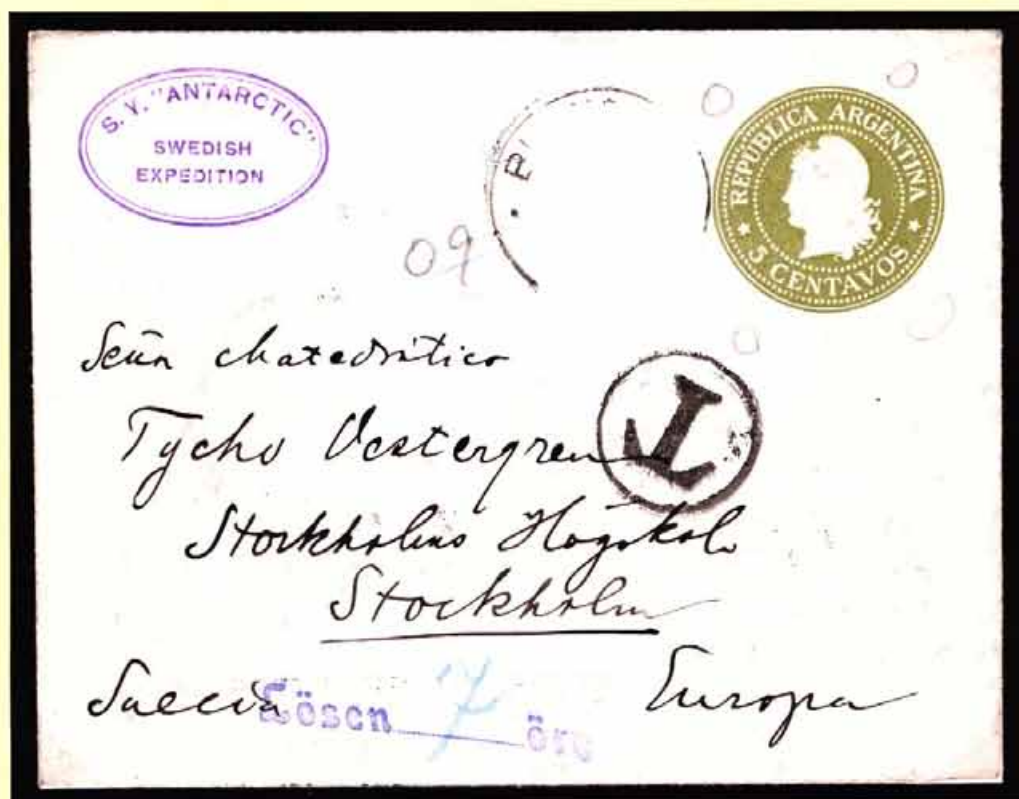 S. Y. "ANTARCTIC"
SWEDISH
EXPEDITION
P
REPUBLICA ARGENTINA
5 CENTAVOS
09
Señor chatedrático
Tycho Vestergren
T
Stockholms Högskola
Stockholm
Suecia Europa
Lösen 7 öre